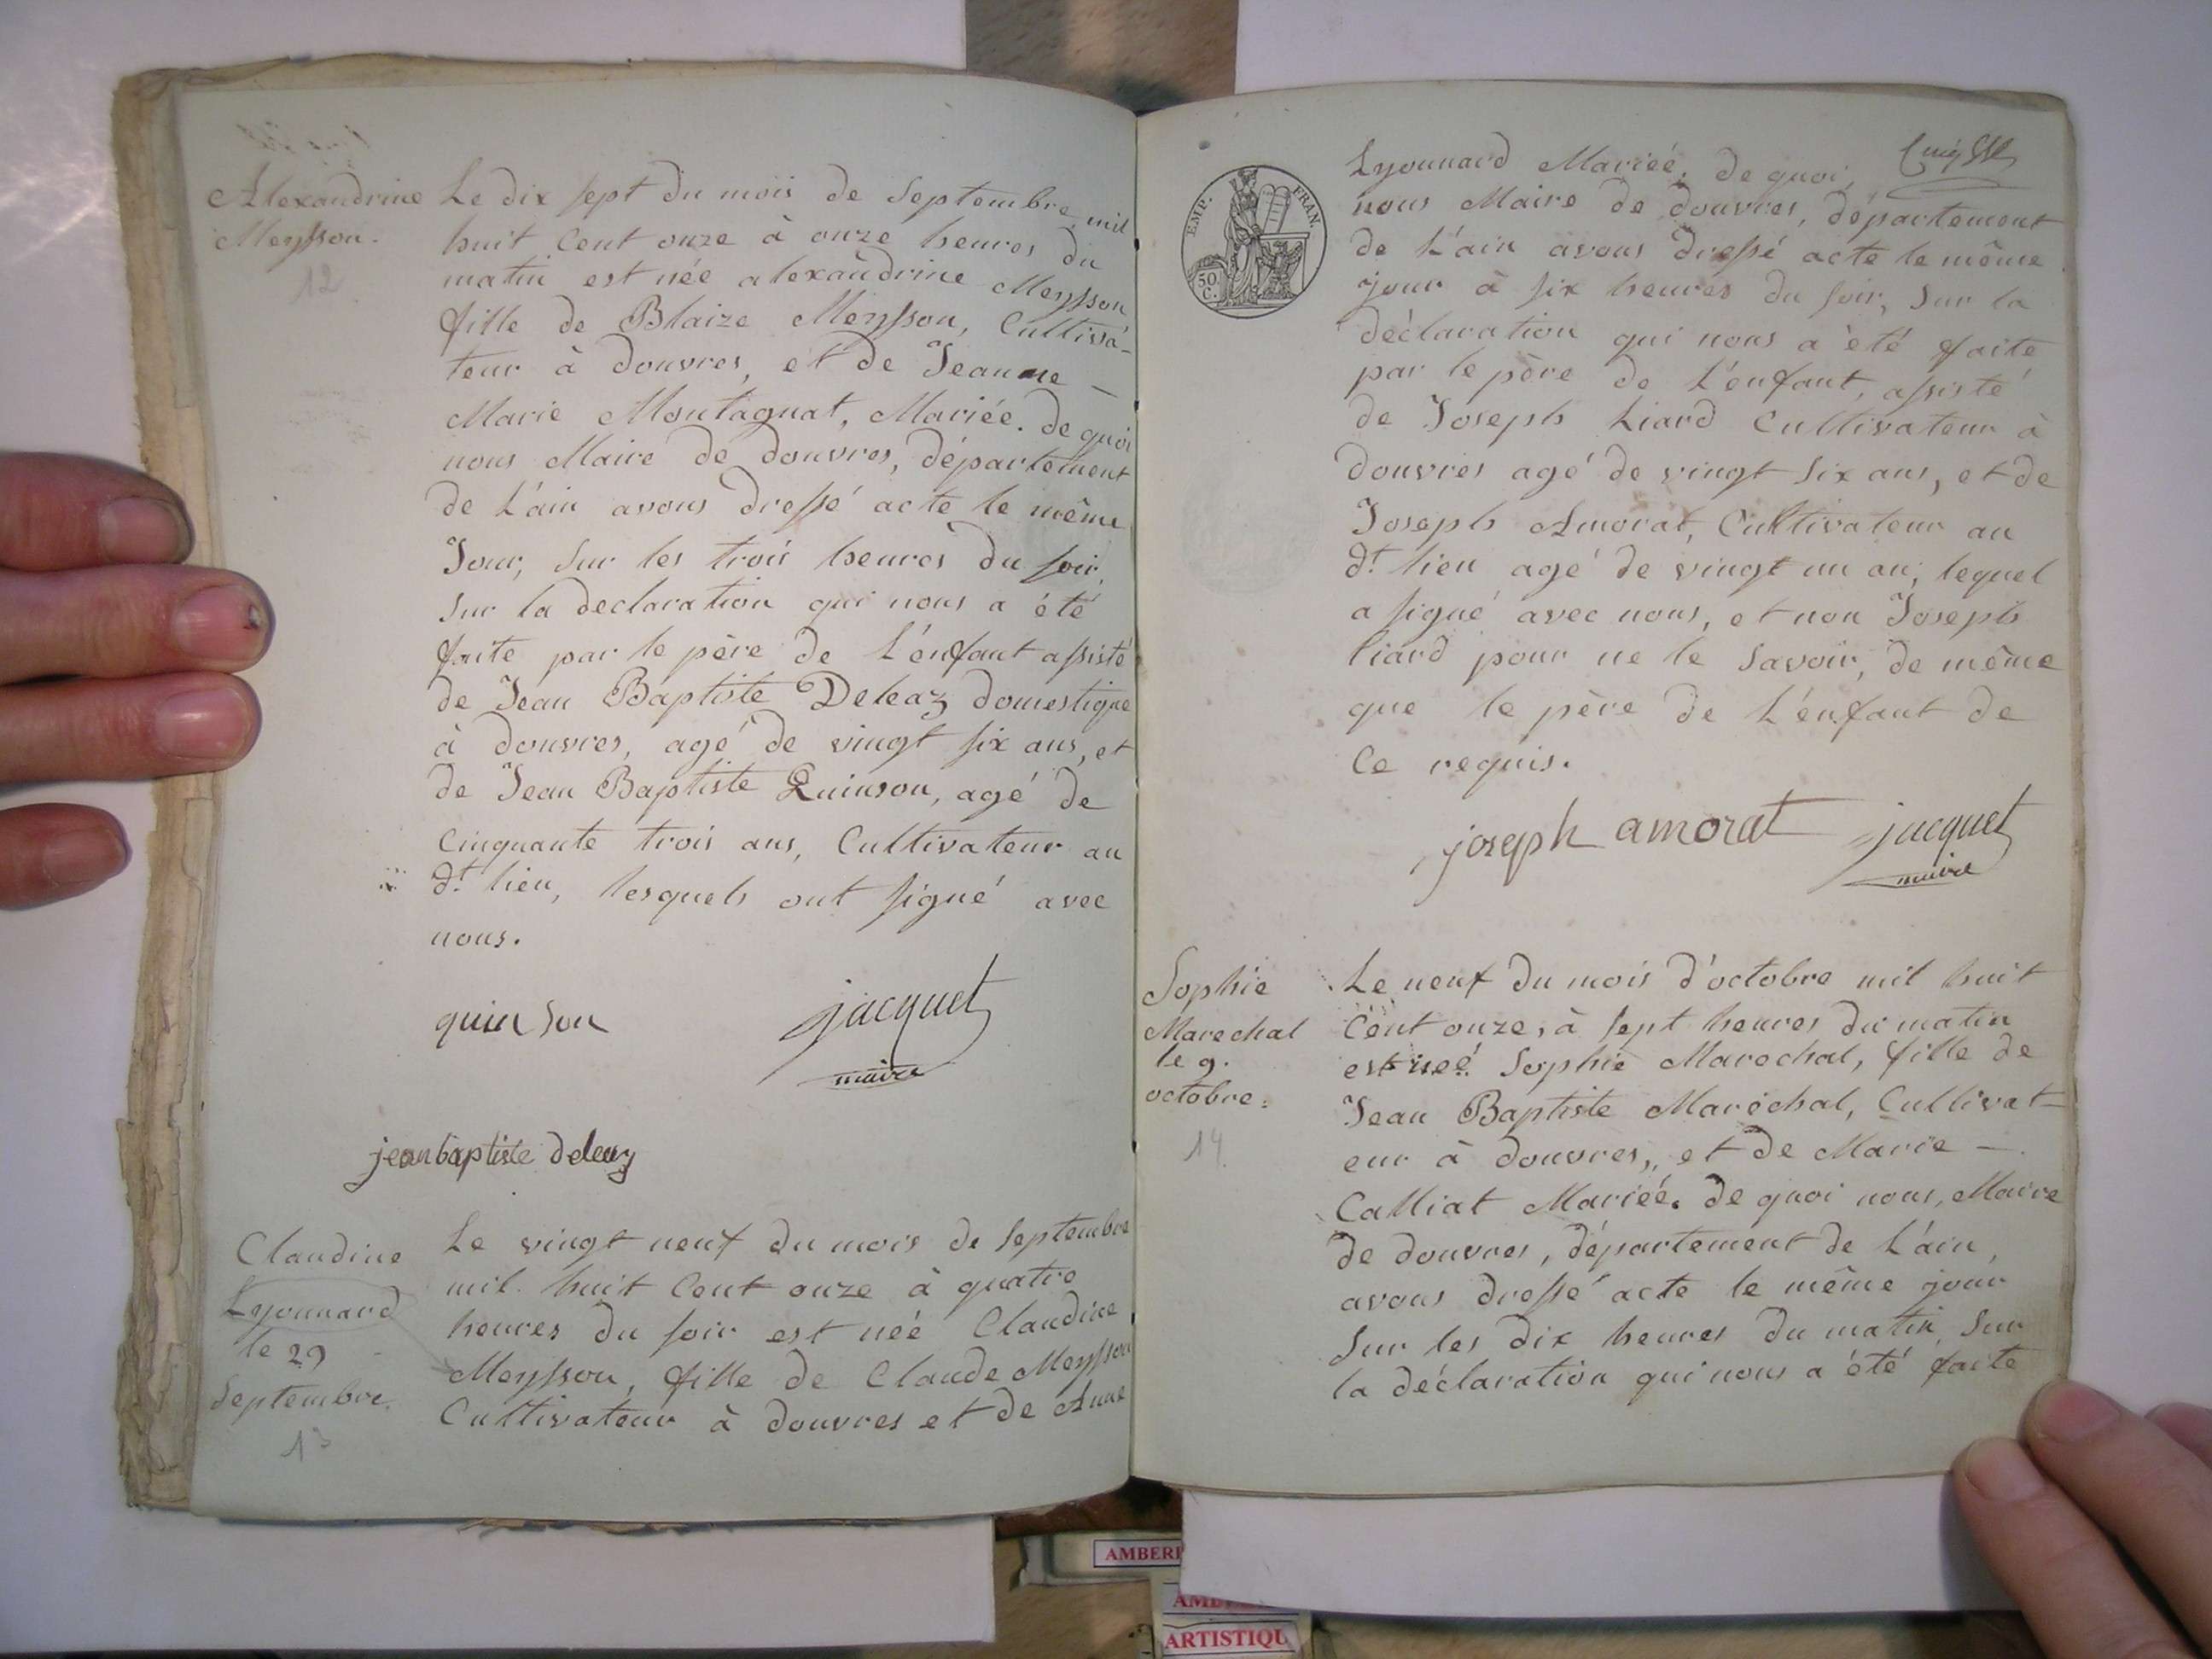 Alexandrine
Meysson.
12
Le dix sept du mois de Septembre mil
huit Cent onze à onze heures du
matin est née alexandrine Meysson
fille de Blaize Meysson, Cultiva-
teur à douvres, et de Jeanne —
Marie Montagnat, Mariée. de quoi
nous Maire de douvres, département
de L'ain avons dressé acte le même
Jour, sur les trois heures du soir,
sur la declaration qui nous a été
faite par le père de L'enfant assisté
de Jean Baptiste Deleaz domestique
à douvres, agé de vingt six ans, et
de Jean Baptiste Quinson, agé de
Cinquante trois ans, Cultivateur au
dt. lieu, lesquels ont signé avec
nous.
quinson jacquet
maire
jean baptiste deleaz
Claudine
Lyonnard
le 29
Septembre.
13
Le vingt neuf du mois de Septembre
mil huit Cent onze à quatre
heures du soir est néé Claudine
Meysson, fille de Claude Meysson
Cultivateur à douvres et de Anne
EMP. FRAN.
50 C.
Lyonnard Mariéé. de quoi
nous Maire de douvres, département
de L'ain avons dressé acte le même
jour à six heures du soir, sur la
déclaration qui nous a été faite
par le père de L'enfant, assisté
de Joseph Liard Cultivateur à
douvres agé de vingt six ans, et de
Joseph Amorat, Cultivateur au
dt. lieu agé de vingt un an, lequel
a signé avec nous, et non Joseph
liard pour ne le savoir, de même
que le père de L'enfant de
Ce requis.
joseph amorat jacquet
maire
Sophie
Marechal
le 9.
octobre.
14
Le neuf du mois d'octobre mil huit
Cent onze, à sept heures du matin
est néé Sophie Marechal, fille de
Jean Baptiste Maréchal, Cultivat-
eur à douvres, et de Marie —
Calliat Mariéé. de quoi nous, Maire
de douvres, département de L'ain,
avons dressé acte le même jour
sur les dix heures du matin, sur
la déclaration qui nous a été faite
AMBER
ARTISTIQU